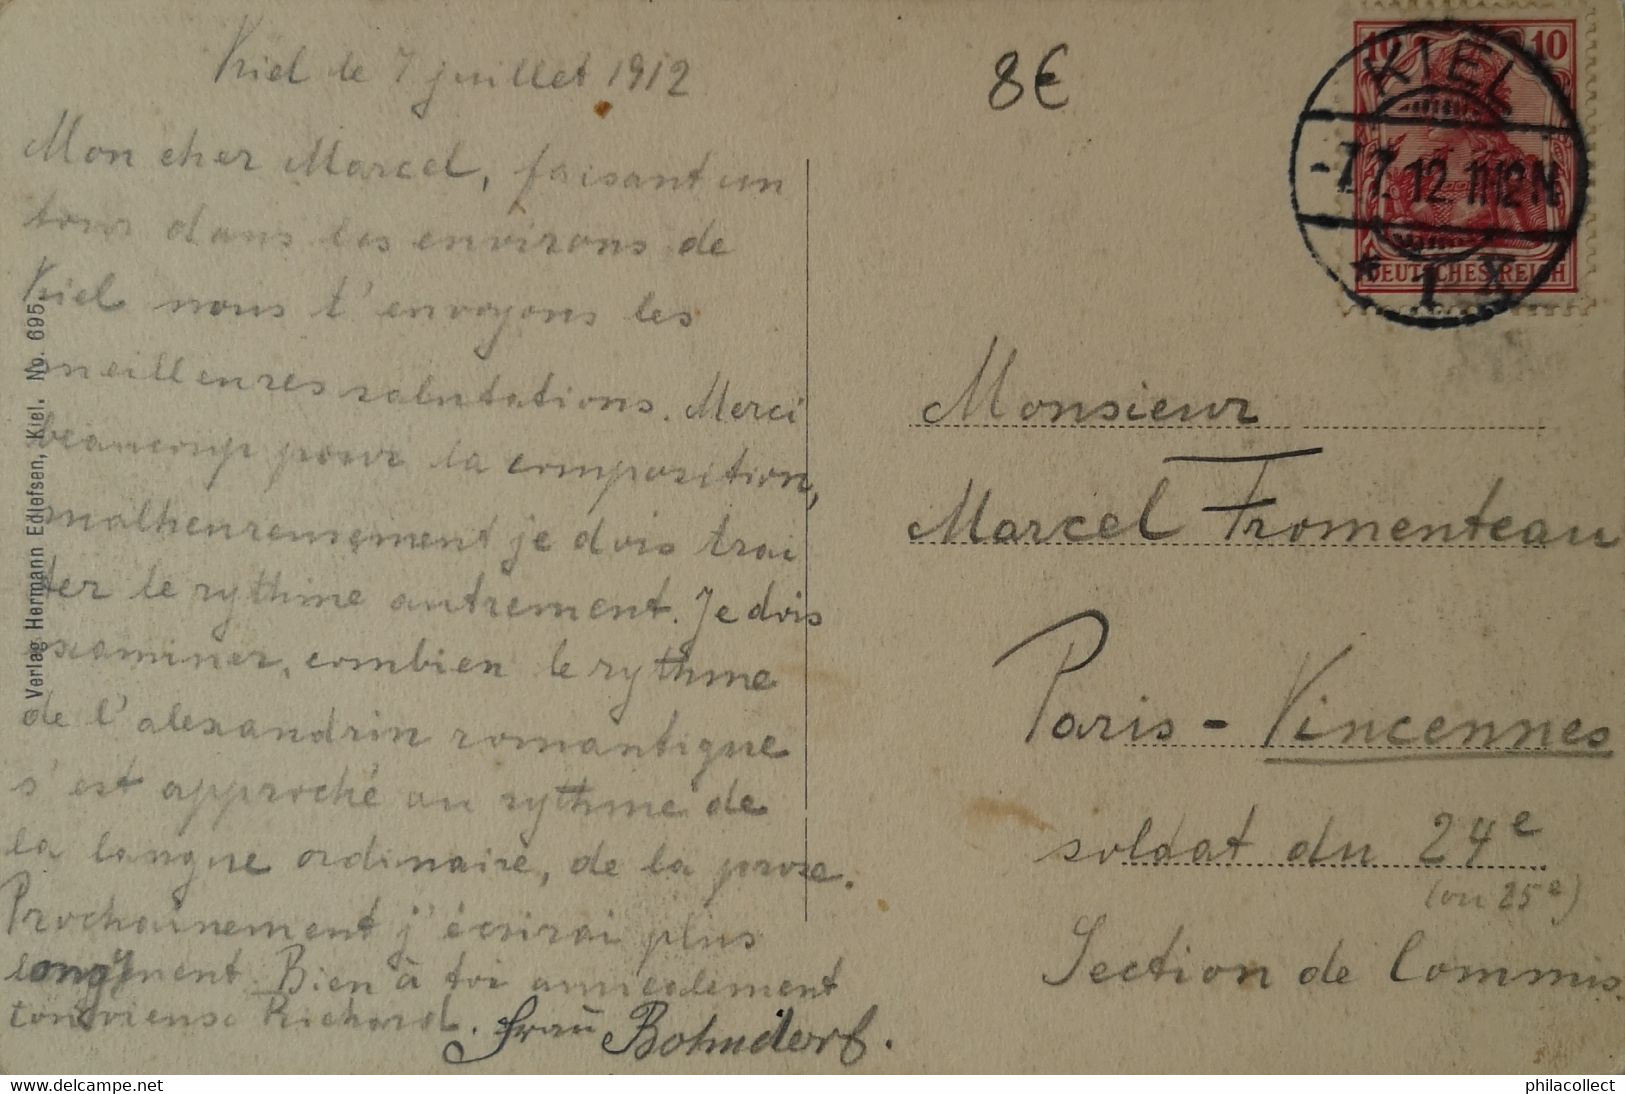 Kiel le 7 juillet 1912
Mon cher Marcel, faisant un
tour dans les environs de
Kiel nous t'envoyons les
meilleures salutations. Merci
beaucoup pour la composition,
malheureusement je dois trai
ter le rythme autrement. Je dois
examiner, combien le rythme
de l'alexandrin romantique
s'est approché au rythme de
la langue ordinaire, de la prose.
Prochainement j'écrirai plus
longment. Bien à toi amicalement
Richard. Frau Bohndorf.
Verlag Hermann Edlefsen, Kiel. No. 695.
8€
10 10
KIEL
-7.7.12.11-12N
* 1 X
DEUTSCHES REICH
Monsieur
Marcel Fromenteau
Paris - Vincennes
soldat du 24e
(ou 25e)
Section de Commis.
philacollect